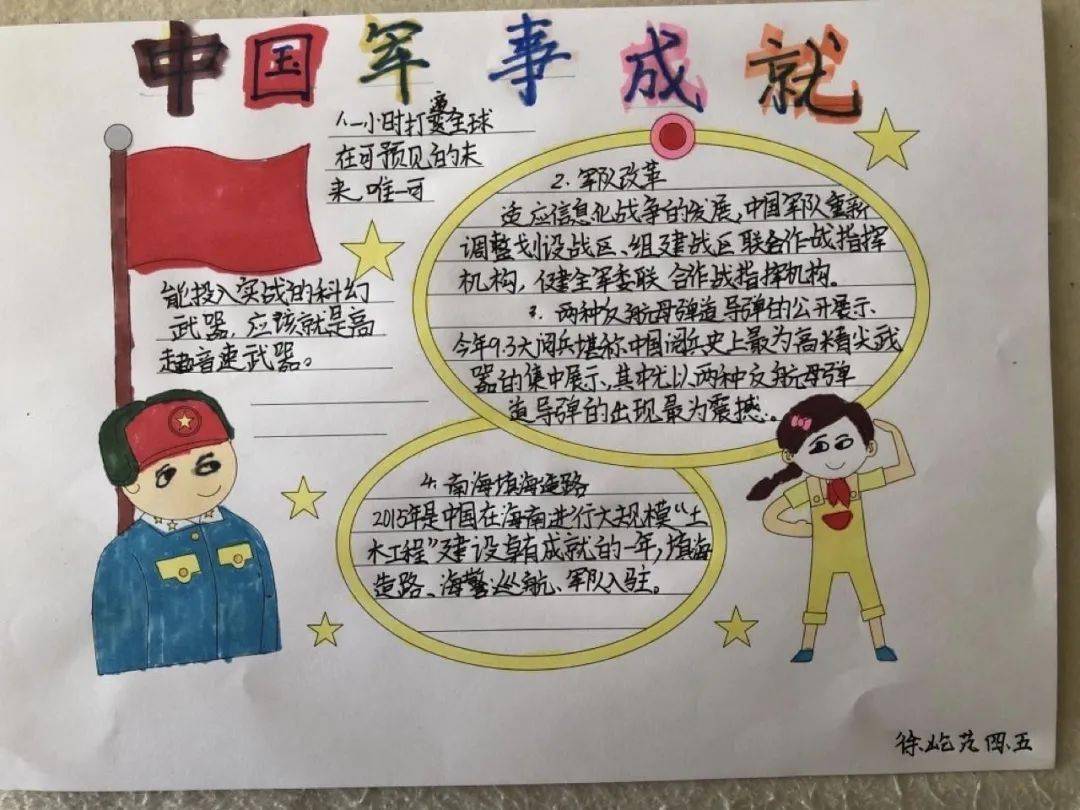 中国军事成就
1.一小时打变全球
在可预见的未
来,唯一可
能投入实战的科幻
武器,应该就是高
超音速武器。
2.军队改革
适应信息化战争的发展,中国军队重新
调整划设战区、组建战区联合作战指挥
机构,健全军委联合作战指挥机构。
3.两种反航母弹道导弹的公开展示
今年9.3大阅兵堪称中国阅兵史上最为高精尖武
器的集中展示,其中尤以两种反航母弹
道导弹的出现最为震撼。
4.南海填海造路
2015年是中国在海南进行大规模“土
木工程”建设卓有成就的一年,填海
造路、海警巡航、军队入驻。
徐 范 四、五